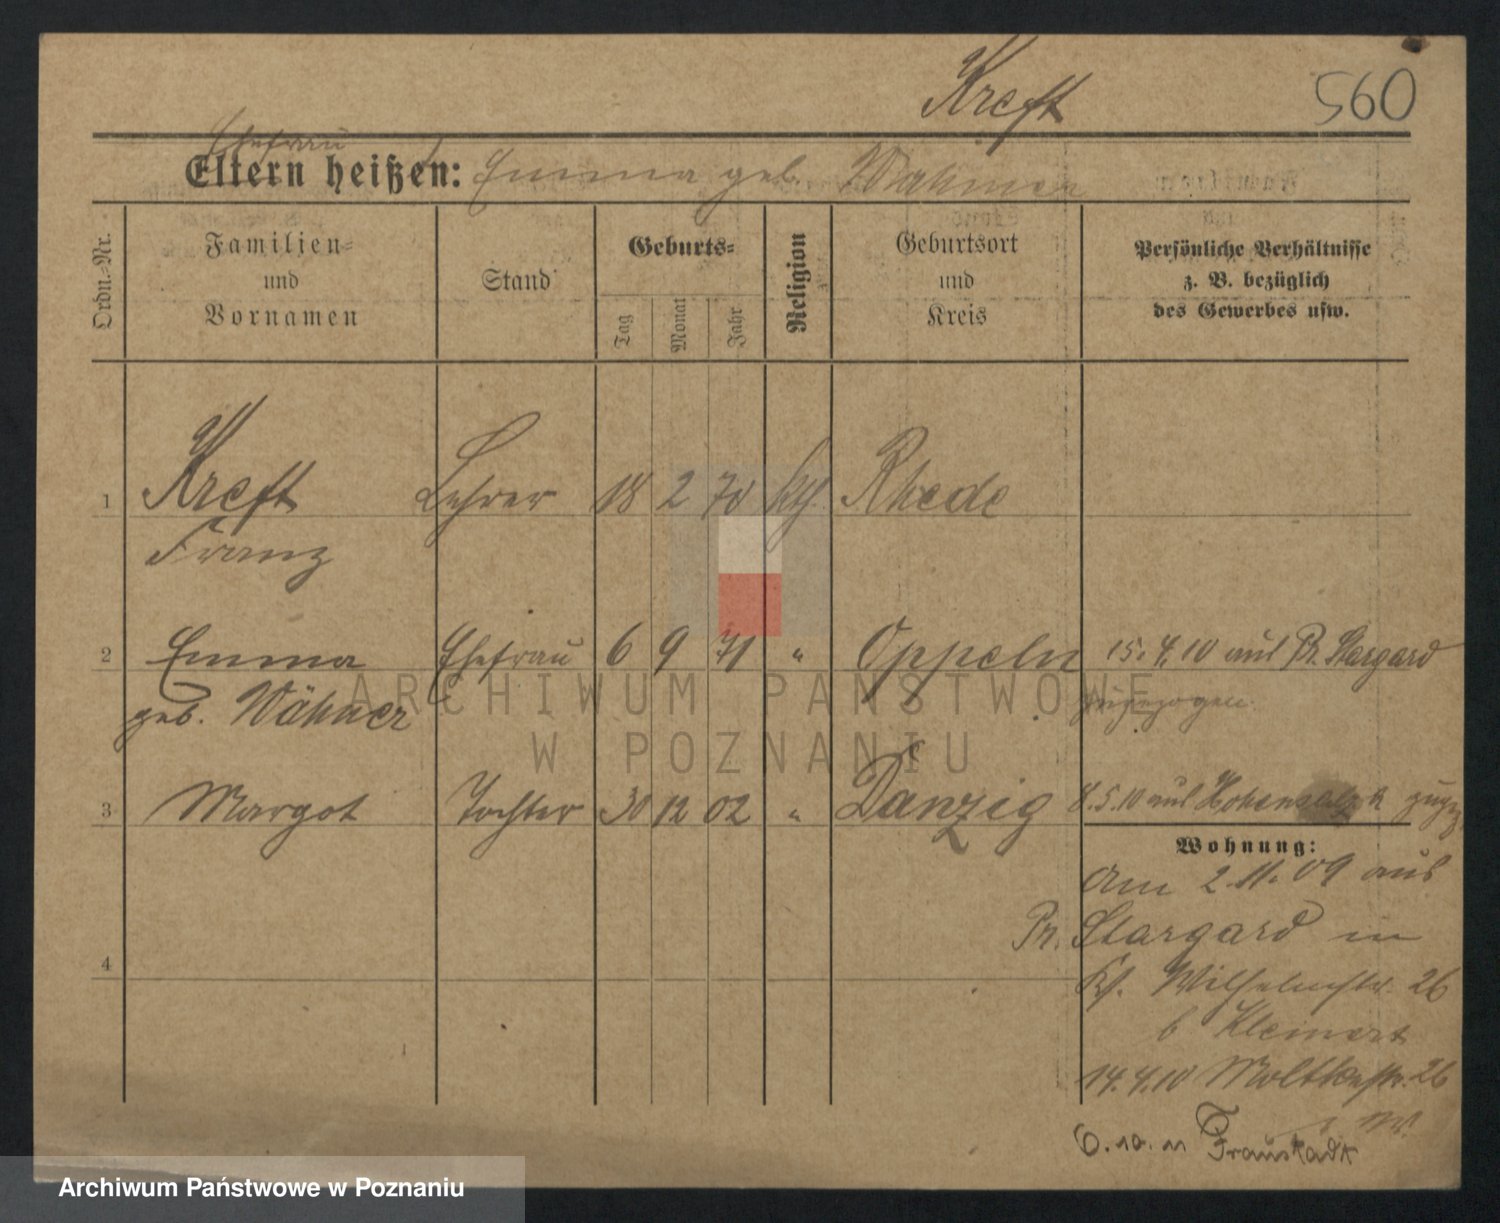 Kreft
560
Ehefrau
Eltern heißen: Emma geb. Wähner
Ordn.-Nr.
Familien-
und
Vornamen
Stand
Geburts-
Tag
Monat
Jahr
Religion
Geburtsort
und
Kreis
Persönliche Verhältnisse
z. B. bezüglich
des Gewerbes usw.
1 Kreft Lehrer 18 2 70 kth. Rhede
Franz
2 Emma Ehefrau 6 9 71 " Oppeln 15.4.10 aus Pr. Stargard
geb. Wähner zugezogen.
3 Margot Tochter 30 12 02 " Danzig 8.5.10 aus Hohensalza zugez.
Wohnung:
am 2.11.09 aus
Pr. Stargard in
Wilhelmstr. 26
b Kleinert
4
14.4.10 Moltkestr. 26
6.10.11 Fraustadt
ARCHIWUM PAŃSTWOWE
W POZNANIU
Archiwum Państwowe w Poznaniu